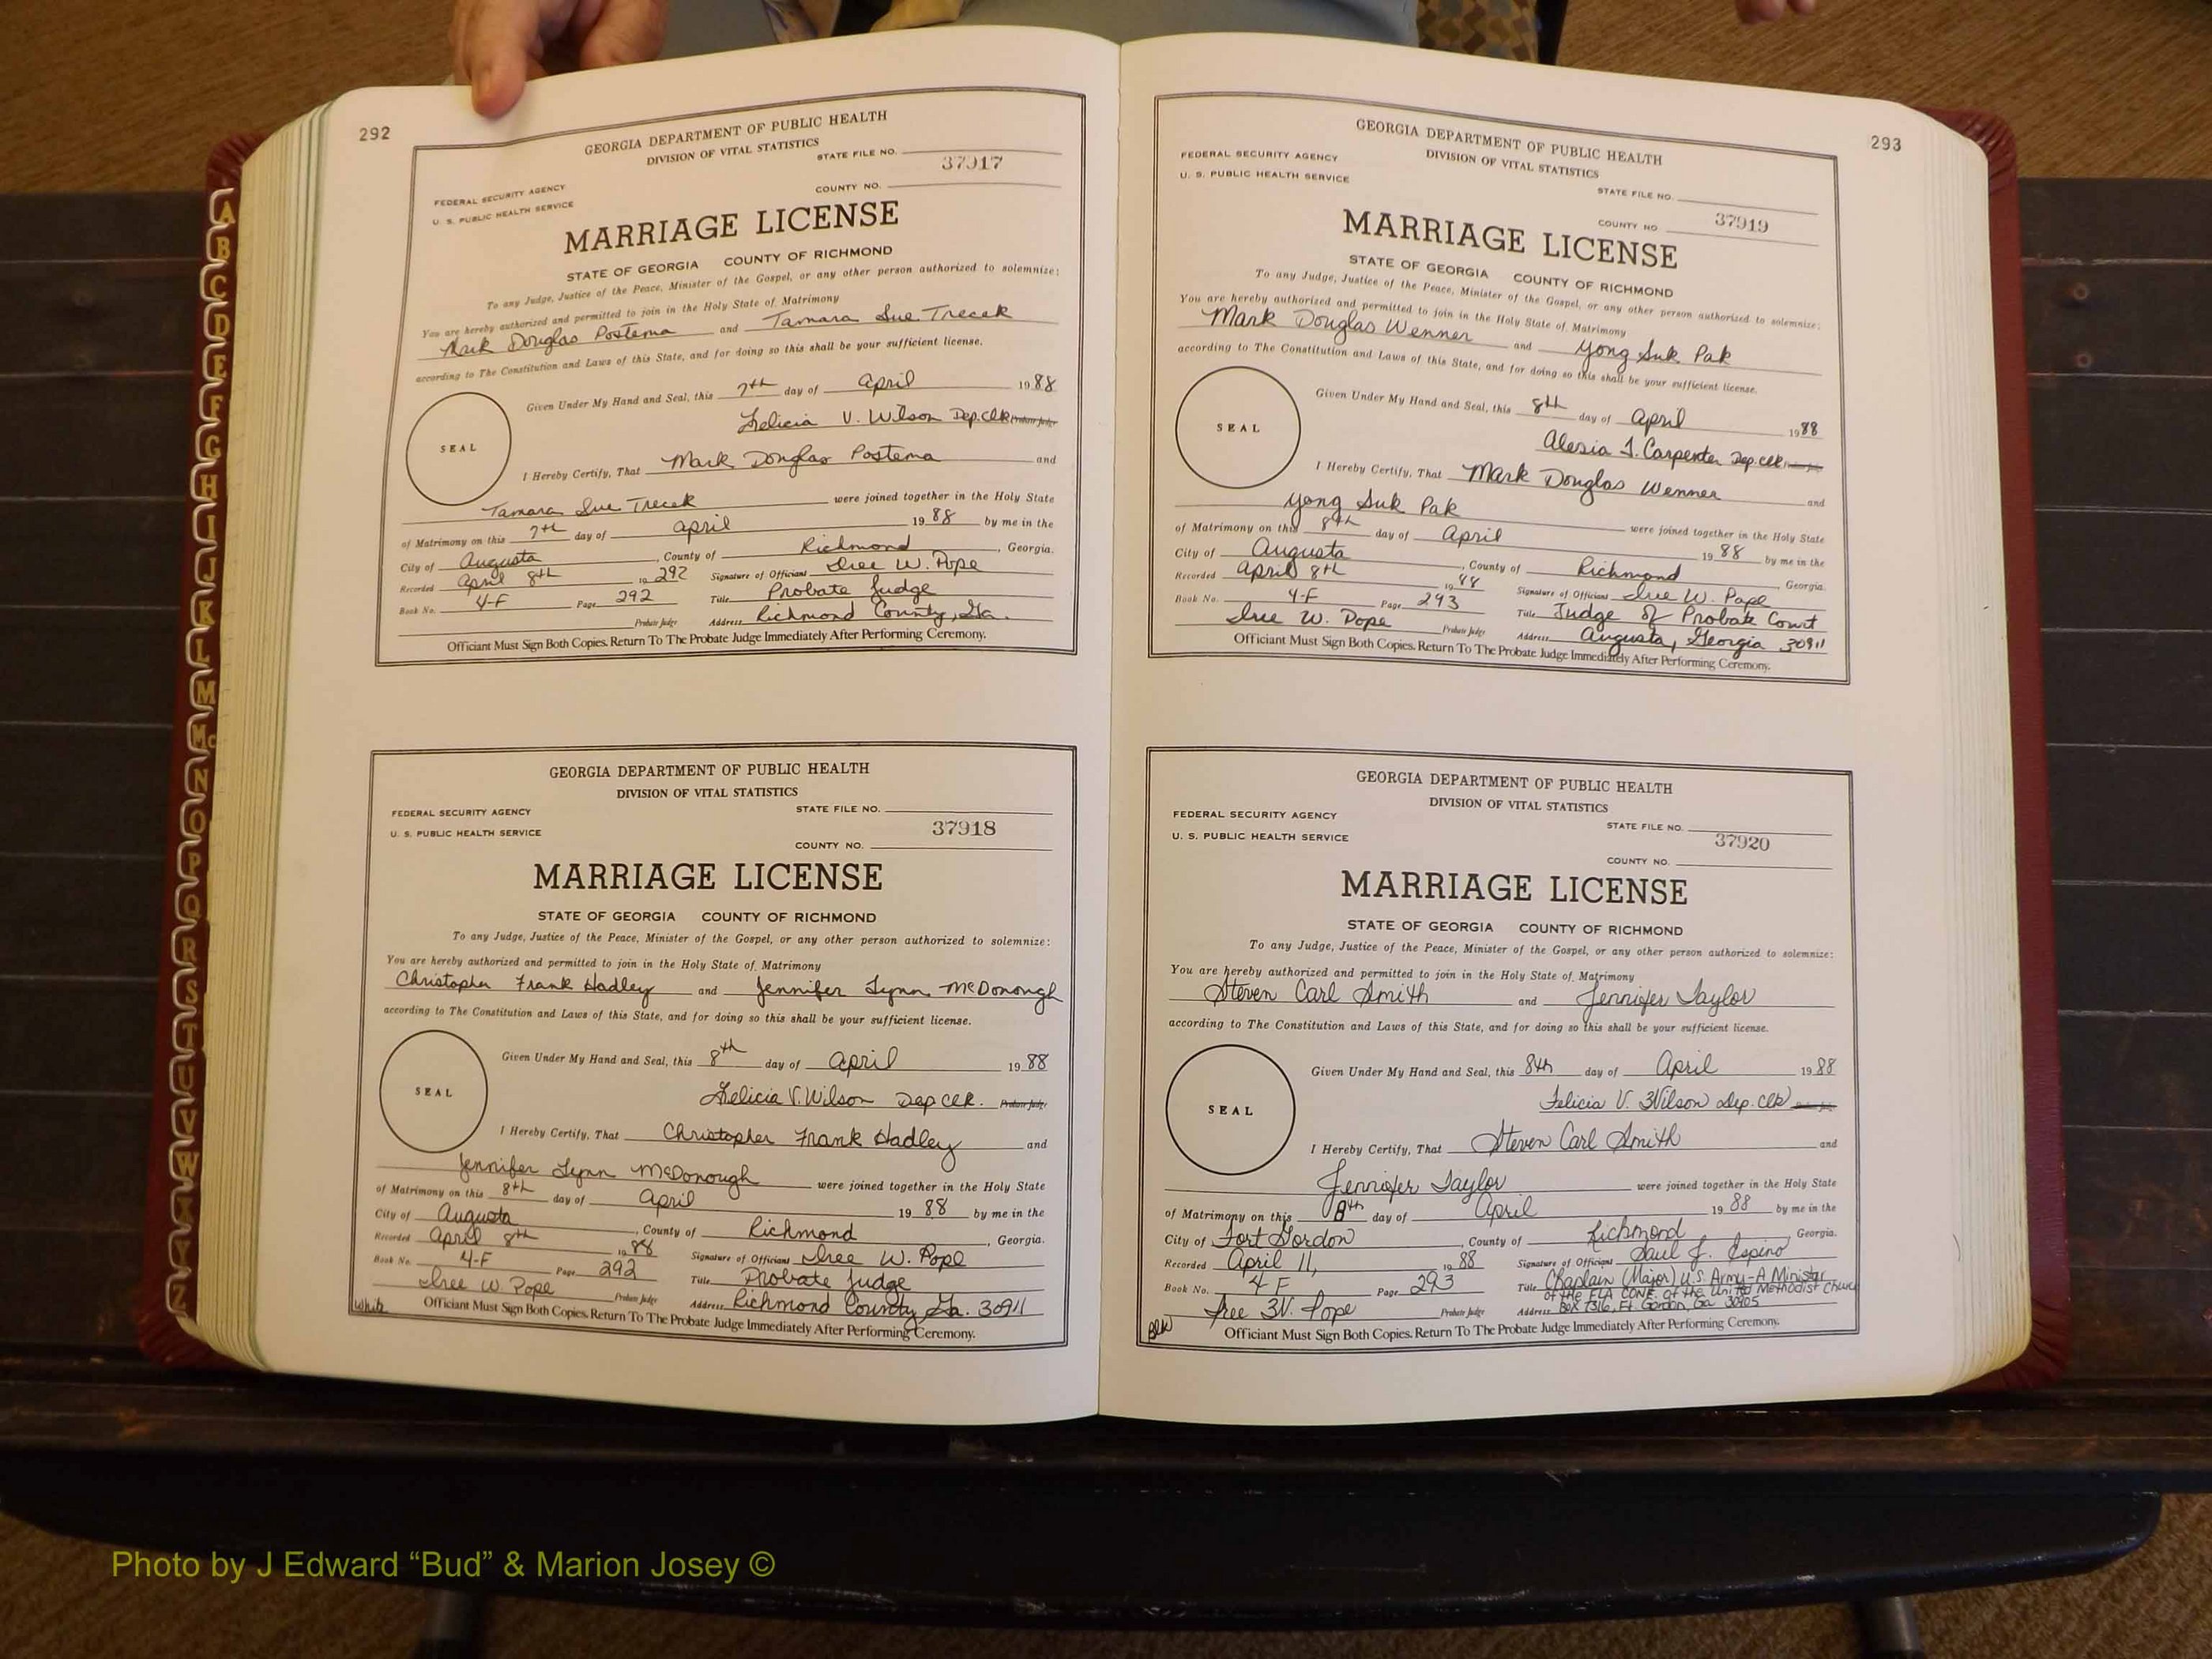 292
GEORGIA DEPARTMENT OF PUBLIC HEALTH
DIVISION OF VITAL STATISTICS
STATE FILE NO.
37917
FEDERAL SECURITY AGENCY
COUNTY NO.
U. S. PUBLIC HEALTH SERVICE
MARRIAGE LICENSE
STATE OF GEORGIA COUNTY OF RICHMOND
To any Judge, Justice of the Peace, Minister of the Gospel, or any other person authorized to solemnize:
You are hereby authorized and permitted to join in the Holy State of Matrimony
Mark Douglas Postema and Tamara Sue Trecek
according to The Constitution and Laws of this State, and for doing so this shall be your sufficient license.
Given Under My Hand and Seal, this 7th day of April 1988
Felicia V. Wilson Dep. Clk Probate Judge
SEAL
I Hereby Certify, That Mark Douglas Postema and
Tamara Sue Trecek were joined together in the Holy State
of Matrimony on this 7th day of April 1988 by me in the
City of Augusta, County of Richmond, Georgia.
Recorded April 8th 19 292 Signature of Officiant Isee W. Pope
Book No. 4-F Page 292 Title Probate Judge
Probate Judge Address Richmond County, Ga.
Officiant Must Sign Both Copies. Return To The Probate Judge Immediately After Performing Ceremony.
GEORGIA DEPARTMENT OF PUBLIC HEALTH
DIVISION OF VITAL STATISTICS
FEDERAL SECURITY AGENCY STATE FILE NO.
U. S. PUBLIC HEALTH SERVICE 37918
COUNTY NO.
MARRIAGE LICENSE
STATE OF GEORGIA COUNTY OF RICHMOND
To any Judge, Justice of the Peace, Minister of the Gospel, or any other person authorized to solemnize:
You are hereby authorized and permitted to join in the Holy State of Matrimony
Christopher Frank Hadley and Jennifer Lynn McDonough
according to The Constitution and Laws of this State, and for doing so this shall be your sufficient license.
Given Under My Hand and Seal, this 8th day of April 1988
Felicia V. Wilson Dep Clk. Probate Judge
SEAL
I Hereby Certify, That Christopher Frank Hadley and
Jennifer Lynn McDonough were joined together in the Holy State
of Matrimony on this 8th day of April 1988 by me in the
City of Augusta, County of Richmond, Georgia.
Recorded April 8th 1988 Signature of Officiant Isee W. Pope
Book No. 4-F Page 292 Title Probate Judge
Isee W Pope Probate Judge Address Richmond County Ga. 30911
White Officiant Must Sign Both Copies. Return To The Probate Judge Immediately After Performing Ceremony.
293
GEORGIA DEPARTMENT OF PUBLIC HEALTH
FEDERAL SECURITY AGENCY DIVISION OF VITAL STATISTICS
U. S. PUBLIC HEALTH SERVICE STATE FILE NO.
COUNTY NO 37919
MARRIAGE LICENSE
STATE OF GEORGIA COUNTY OF RICHMOND
To any Judge, Justice of the Peace, Minister of the Gospel, or any other person authorized to solemnize:
You are hereby authorized and permitted to join in the Holy State of Matrimony
Mark Douglas Wenner and Yong Suk Pak
according to The Constitution and Laws of this State, and for doing so this shall be your sufficient license.
Given Under My Hand and Seal, this 8th day of April 1988
Alesia J. Carpenter Dep. Clk
SEAL
I Hereby Certify, That Mark Douglas Wenner and
Yong Suk Pak were joined together in the Holy State
of Matrimony on this 8th day of April 1988 by me in the
City of Augusta, County of Richmond Georgia.
Recorded April 8th 1988 Signature of Officiant Isee W. Pope
Book No. 4-F Page 293 Title Judge of Probate Court
Isee W. Pope Probate Judge Address Augusta, Georgia 30911
Officiant Must Sign Both Copies. Return To The Probate Judge Immediately After Performing Ceremony.
GEORGIA DEPARTMENT OF PUBLIC HEALTH
DIVISION OF VITAL STATISTICS
FEDERAL SECURITY AGENCY STATE FILE NO.
U. S. PUBLIC HEALTH SERVICE 37920
COUNTY NO.
MARRIAGE LICENSE
STATE OF GEORGIA COUNTY OF RICHMOND
To any Judge, Justice of the Peace, Minister of the Gospel, or any other person authorized to solemnize:
You are hereby authorized and permitted to join in the Holy State of Matrimony
Steven Carl Smith and Jennifer Taylor
according to The Constitution and Laws of this State, and for doing so this shall be your sufficient license.
Given Under My Hand and Seal, this 8th day of April 1988
Felicia V. Wilson Dep. Clk
SEAL
I Hereby Certify, That Steven Carl Smith and
Jennifer Taylor were joined together in the Holy State
of Matrimony on this 8th day of April 1988 by me in the
City of Fort Gordon, County of Richmond Georgia.
Recorded April 11, 1988 Signature of Officiant Saul J. Espino
Book No. 4 F Page 293 Title Chaplain (Major) U.S. Army-A Minister
of the FLA CONF. of the United Methodist Church
Isee W. Pope Probate Judge Address Box 7316, Ft. Gordon, Ga 30905
Blk Officiant Must Sign Both Copies. Return To The Probate Judge Immediately After Performing Ceremony.
A
B
C
D
E
F
G
H
I
J
K
L
M
Mc
N
O
P
Q
R
S
T
U
V
W
X
Y
Z
Photo by J Edward “Bud” & Marion Josey ©